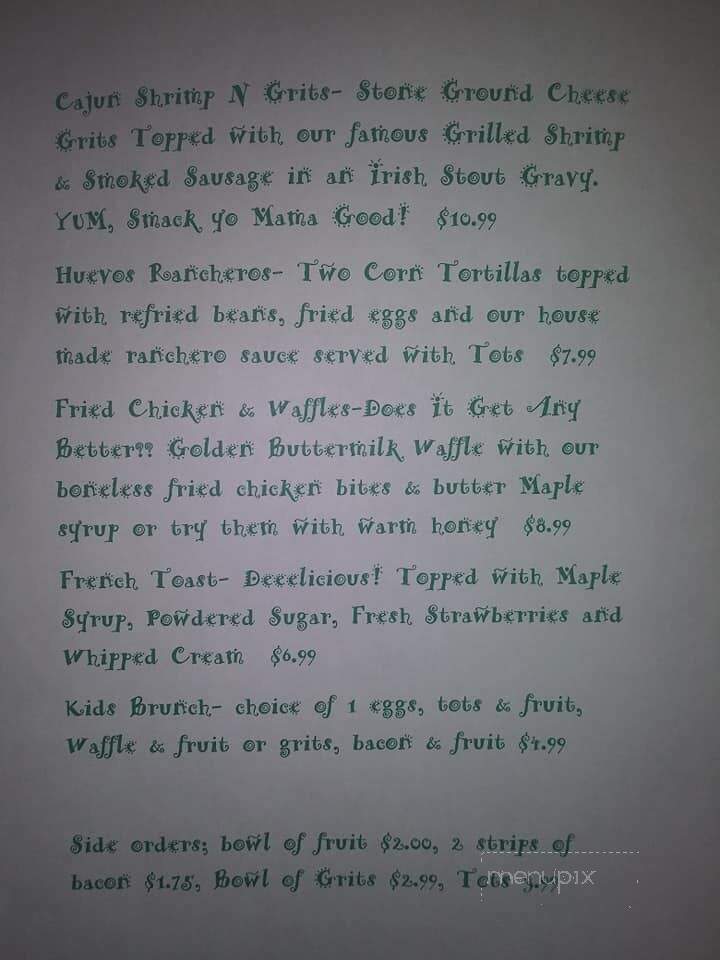 Cajun Shrimp N Grits- Stone Ground Cheese
Grits Topped with our famous Grilled Shrimp
& Smoked Sausage in an Irish Stout Gravy.
YUM, Smack yo Mama Good! $10.99
Huevos Rancheros- Two Corn Tortillas topped
with refried beans, fried eggs and our house
made ranchero sauce served with Tots $7.99
Fried Chicken & Waffles-Does It Get Any
Better?? Golden Buttermilk Waffle with our
boneless fried chicken bites & butter Maple
syrup or try them with warm honey $8.99
French Toast- Deeelicious! Topped with Maple
Syrup, Powdered Sugar, Fresh Strawberries and
Whipped Cream $6.99
Kids Brunch- choice of 1 eggs, tots & fruit,
Waffle & fruit or grits, bacon & fruit $4.99
Side orders; bowl of fruit $2.00, 2 strips of
bacon $1.75, Bowl of Grits $2.99, Tots
menupix